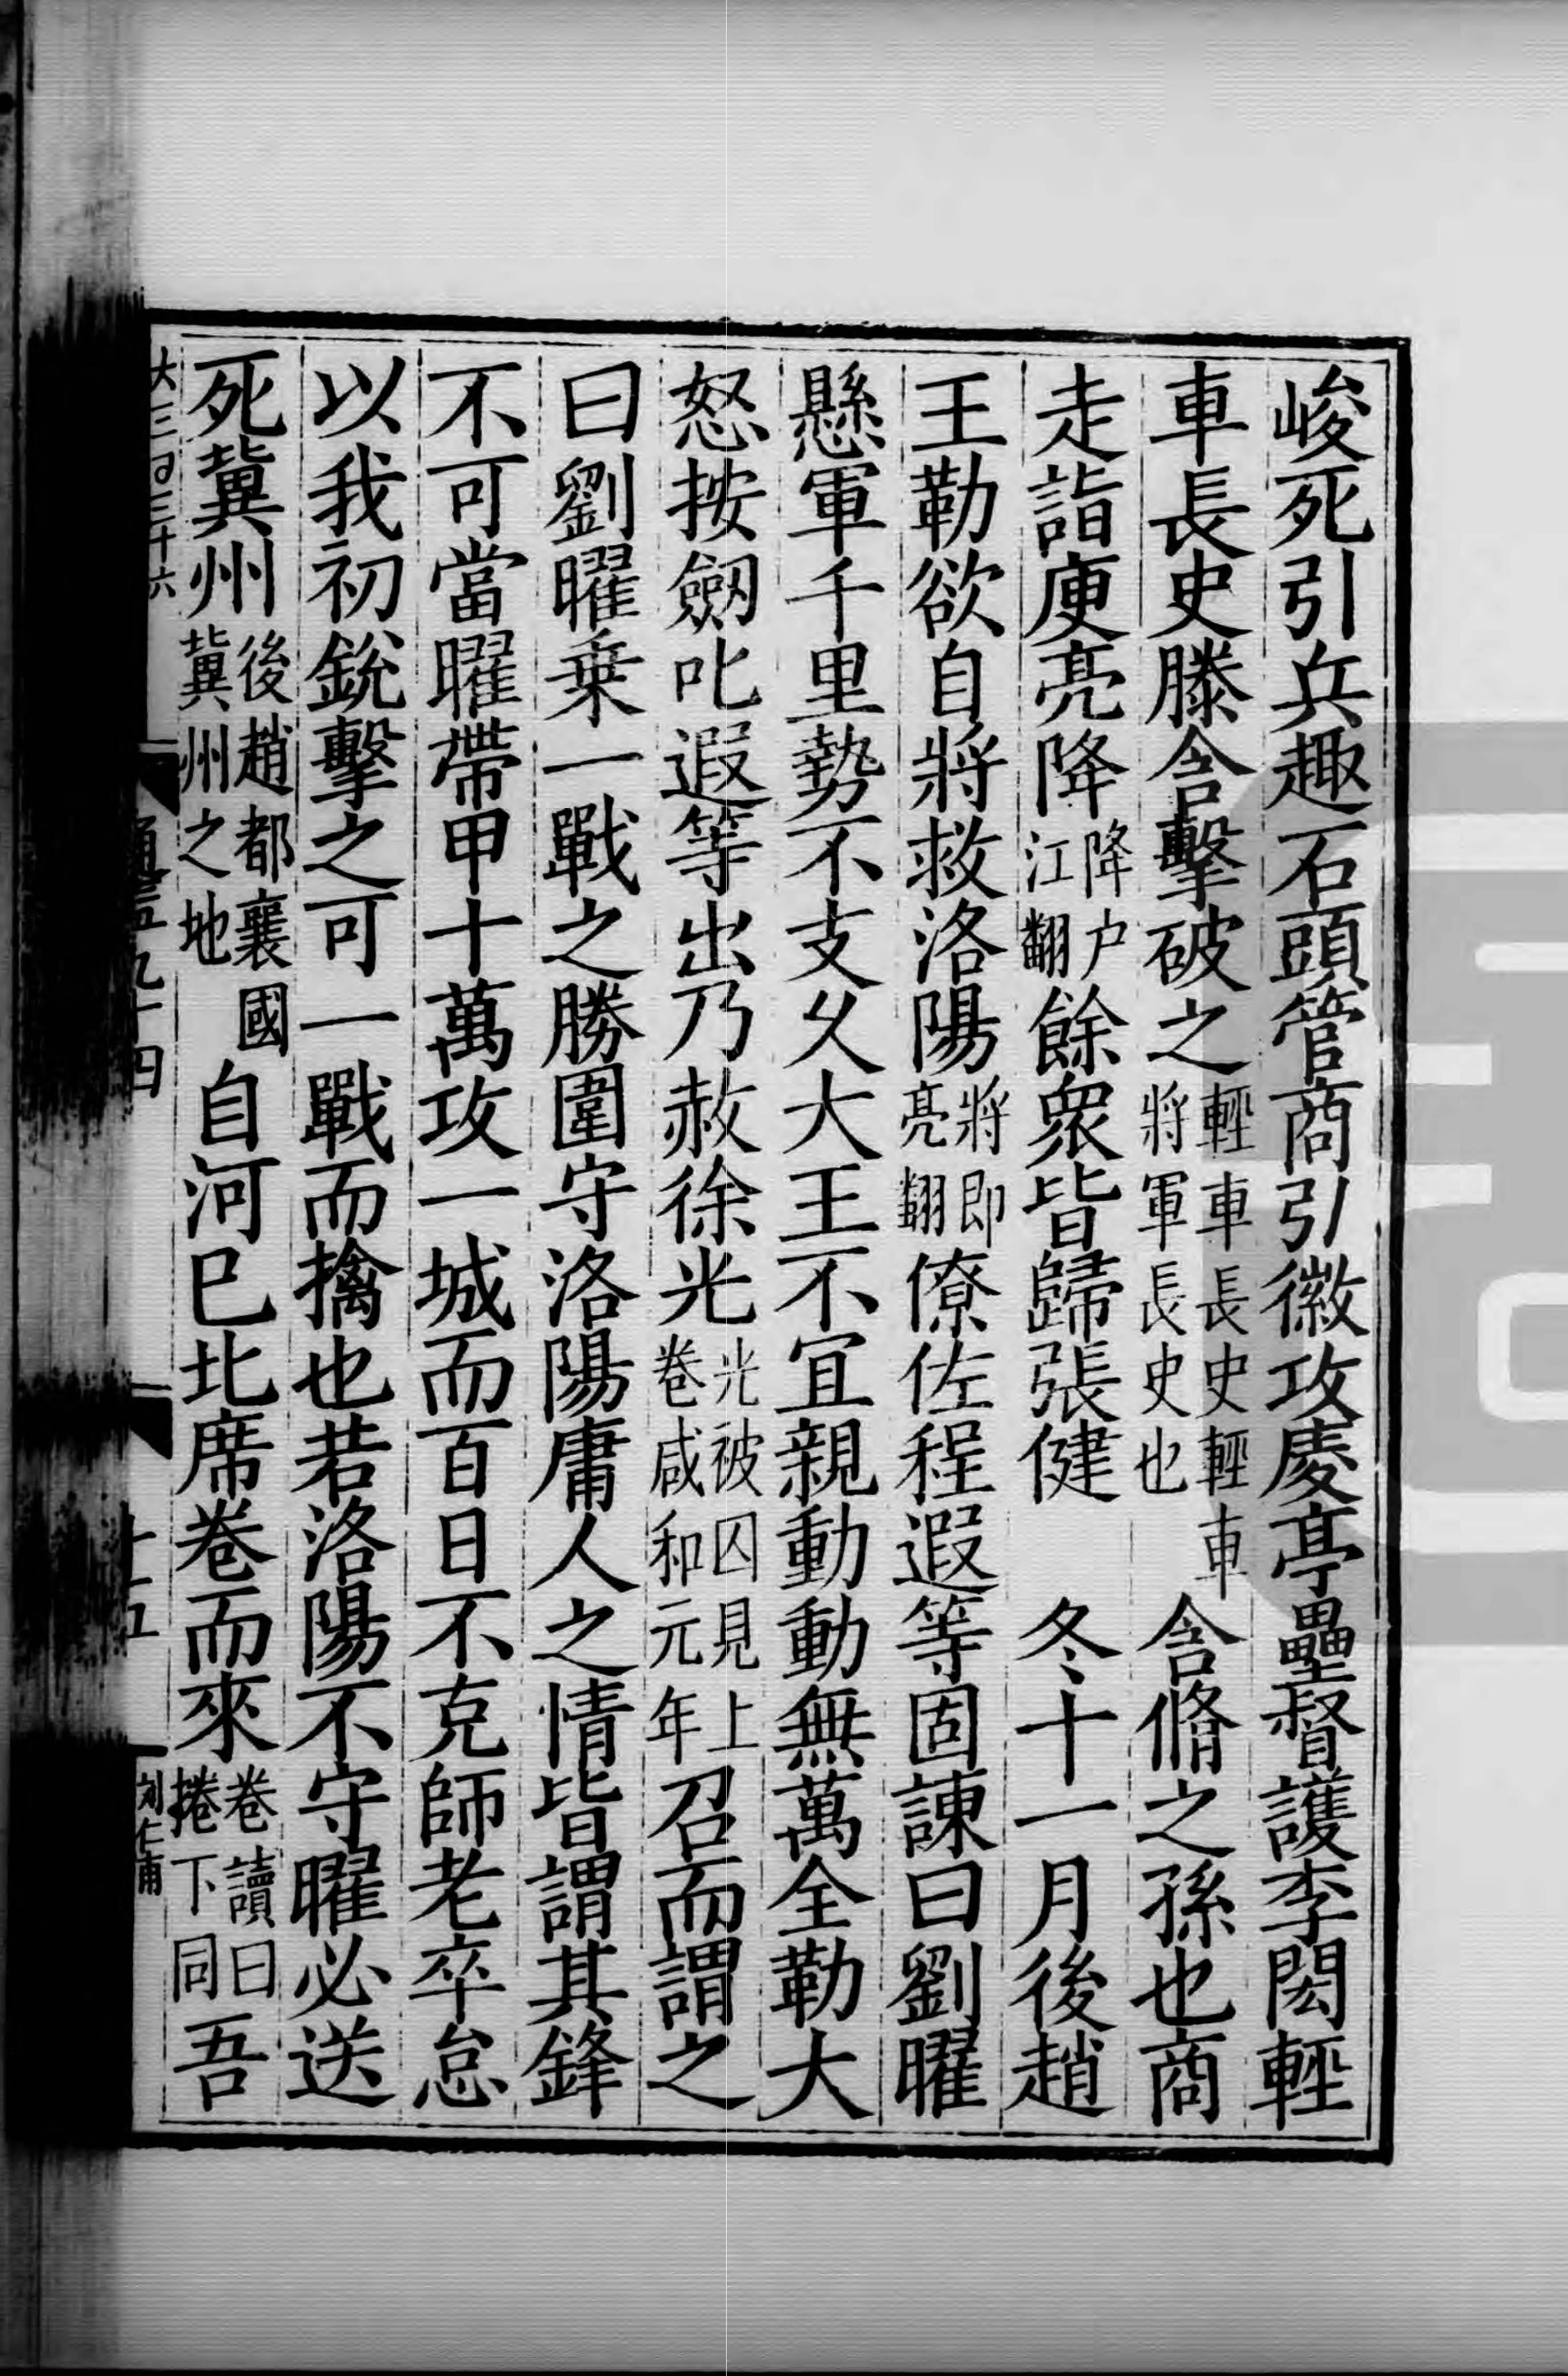 峻死引兵趣石頭管商引徽攻慶亭壘督護李閎輕
車長史滕含擊破之輕車長史輕車將軍長史也含脩之孫也商
走詣庾亮降降户江翻餘衆皆歸張健 冬十一月後趙
王勒欲自將救洛陽將即亮翻僚佐程遐等固諫曰劉曜
懸軍千里勢不支久大王不宜親動動無萬全勒大
怒按劔叱遐等出乃赦徐光光被囚見上卷咸和元年召而謂之
曰劉曜乗一戰之勝圍守洛陽庸人之情皆謂其鋒
不可當曜帶甲十萬攻一城而百日不克師老卒怠
以我初銳擊之可一戰而擒也若洛陽不守曜必送
死冀州後趙都襄國冀州之地自河已北席卷而來卷讀曰捲下同吾
大三百三十六
通五九十四
十五
刘仁甫